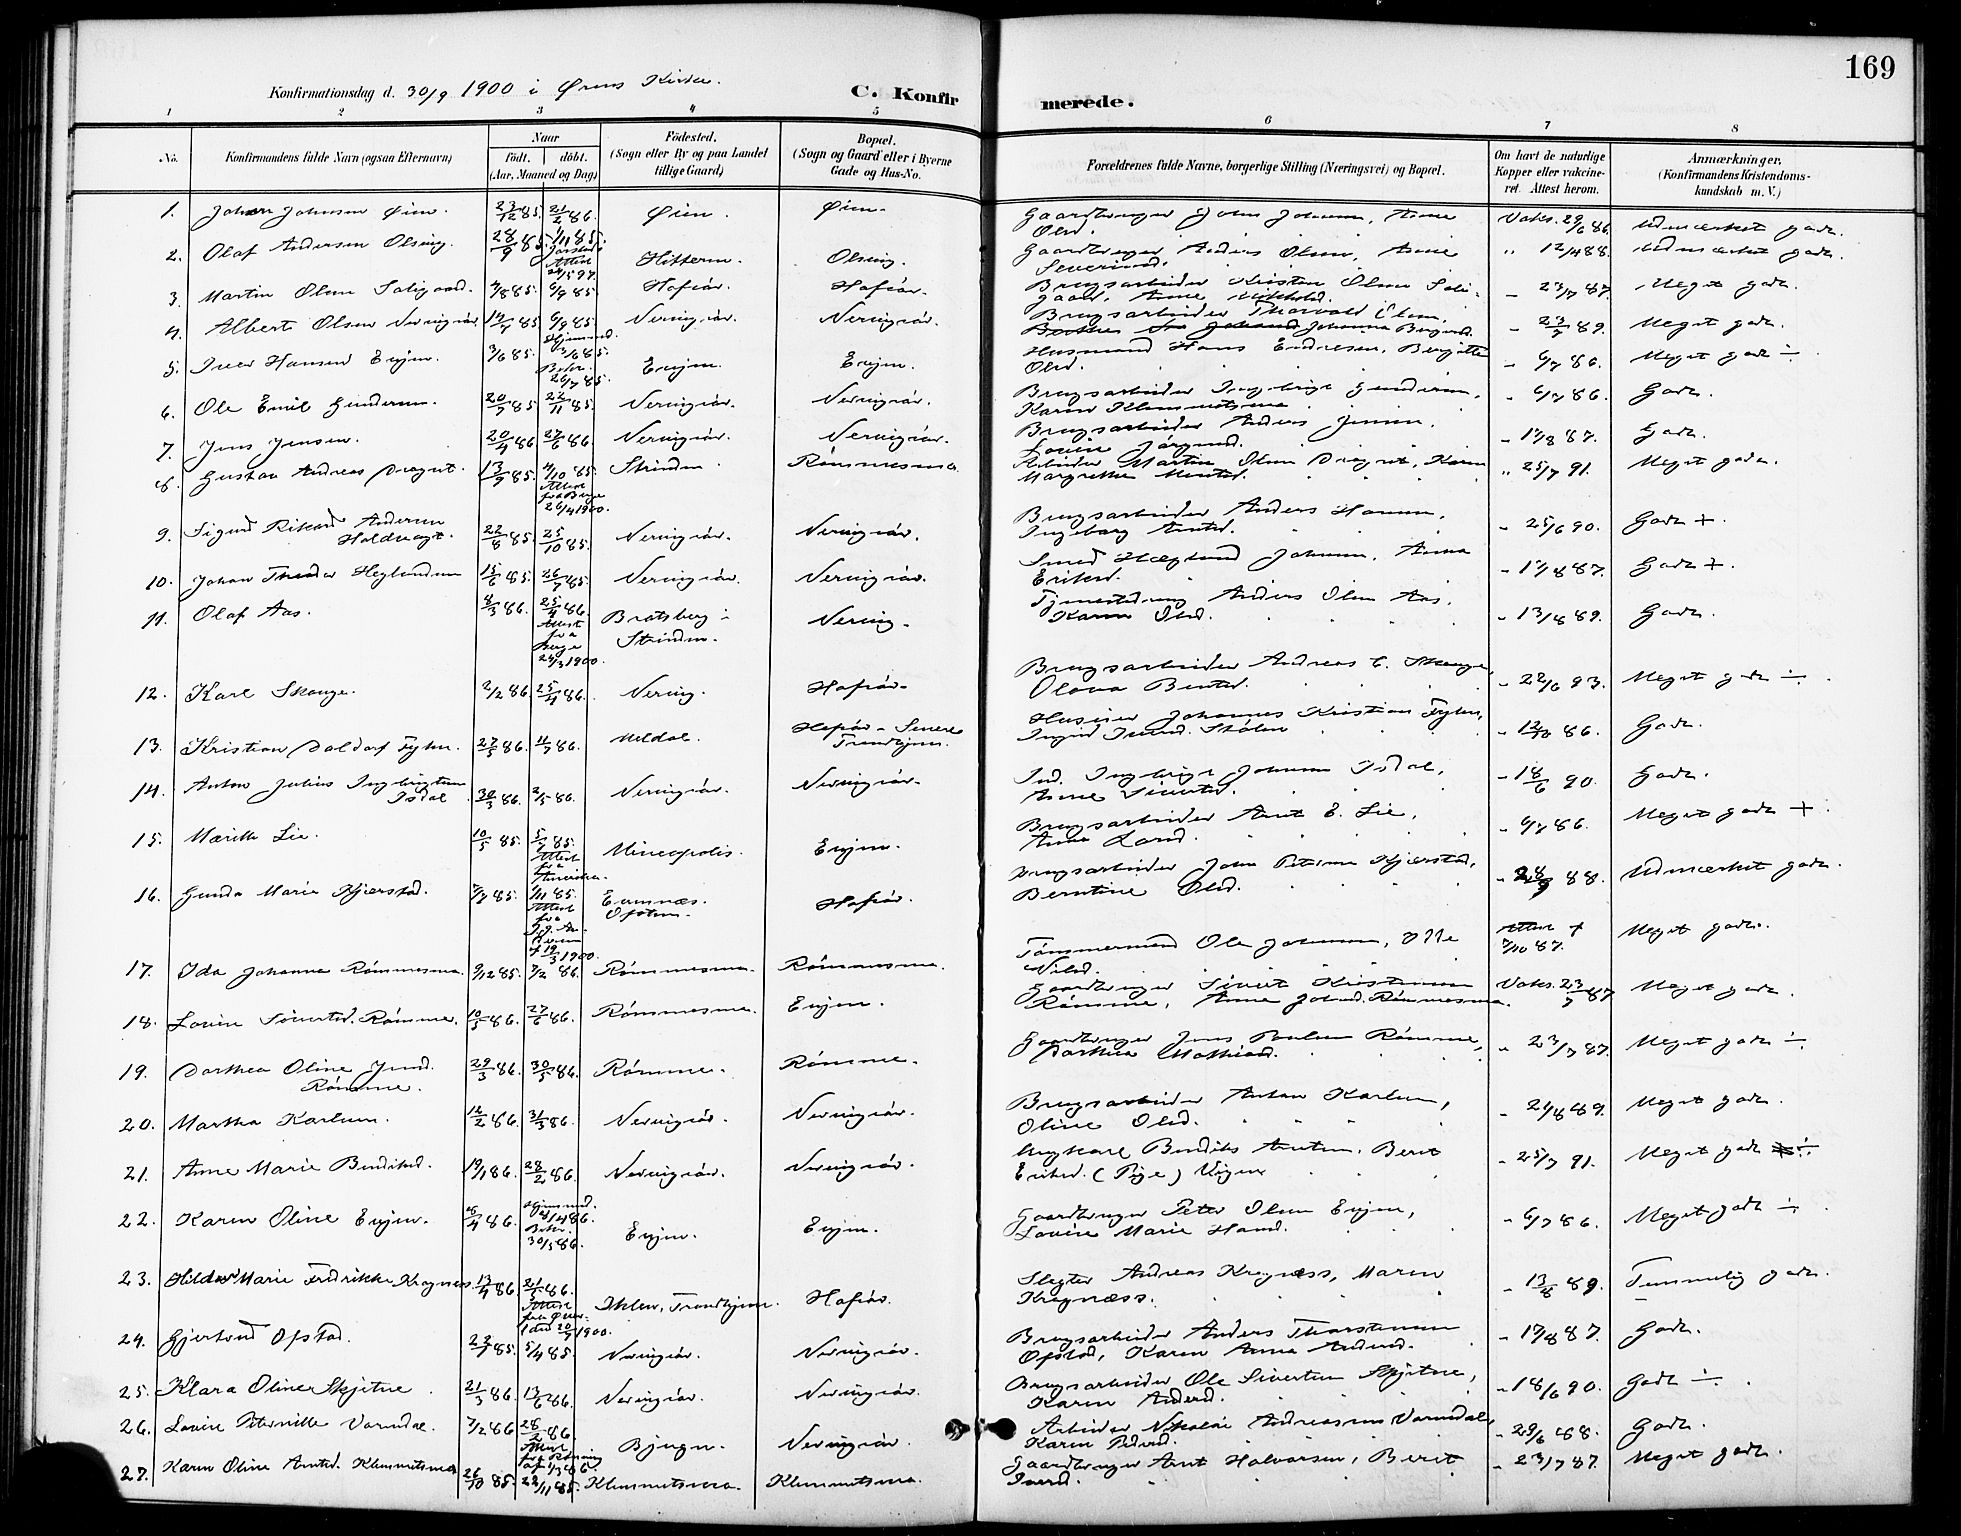 169
Konfirmationsdag d. 30/9 1900 i Ørens Kirke.
C. Konfirmerede.
1 2 3 4 5 6 7 8
No.
Konfirmandens fulde Navn (ogsaa Efternavn)
Naar
födt. döbt.
(Aar, Maaned og Dag)
Födested.
(Sogn eller By og paa Landet
tillige Gaard)
Bopæl.
(Sogn og Gaard eller i Byerne
Gade og Hus-No.
Forældrenes fulde Navne, borgerlige Stilling (Næringsvei) og Bopæl.
Om havt de naturlige
Kopper eller vakcine-
ret. Attest herom.
Anmærkninger,
(Konfirmandens Kristendoms-
kundskab m. V.)
1. Johan Johnsen Øien. 23/12 85. 21/2 86. Øien. Øien. Gaardbruger John Johnsen, Anne Olsd. Vaks. 29/6 86. Udmærket godt.
2. Olaf Andersen Olsvig. 28/9 85. 1/11 85. Attest Hitteren. Olsvig. Gaardbruger Anders Olsen, Anne " 12/4 88. Udmærket godt.
3. Martin Olsen Soligaard. 4/8 85. 6/9 85. Hofsør. Hofsør. Brugsarbeider Kristen Olsen Soligaard, Anne - 23/7 87. Meget godt.
4. Albert Olsen Nervigsør 14/7 85. 6/9 85. Nervigsør. Nervigsør. Brugsarbeider Thorvald Olsen, Johanna - 23/7 89. Meget godt.
5. Iver Hansen Evjen. 3/6 85. 26/7 85. Evjen. Evjen. Husmand Hans Endresen, Bergitte Olsd. - 6/7 86. Meget godt ÷
6. Ole Emil Gundersen. 20/9 85. 22/11 85. Nervigsør. Nervigsør. Brugsarbeider Ingebrigt Gundersen, Karen Klemmetsmo - 6/7 86. Godt.
7. Jens Jensen. 20/4 86. 27/6 86. Nervigsør. Nervigsør. Brugsarbeider Anders Jensen, Lovise - 17/8 87. Godt.
8. Gustav Andreas Dragset. 13/9 85. 4/10 85. Attest fra Berge 26/4 1900. Strinden. Rømmesmo. Arbeider Martin Olsen Dragset, Karen Margrethe " 25/7 91. Meget godt.
9. Sigurd Rikard Andersen Holdvagt. 22/8 85. 25/10 85. Nervigsør. Nervigsør. Brugsarbeider Anders Hansen, Ingeborg Arntsd. - 25/6 90. Godt +.
10. Johan Heglundsen 15/6 85. 26/7 85. Nervigsør. Nervigsør. Smed Hæglund Johnsen, Anna Eriksd. - 17/8 87. Godt +.
11. Olaf Aas. 8/3 86. 25/4 86. Attest fra Berge 24/3 1900. Bratsberg i Strinden. Nervig. Tjenestedreng Anders Olsen Aas, Karen Olsd. - 13/8 89. Godt.
12. Karl Skauge. 2/2 86. 25/4 86. Nervig. Hofsør. Brugsarbeider Andreas C. Skauge, Olava Bentsd. - 22/6 93. Meget godt ÷.
13. Kristian Foldorf 27/5 86. 11/7 86. Meldal. Hofsør - Senere Trondhjem. Husmand Johannes Kristian Ingrid Stølen - 12/10 86. Godt.
14. Anton Julius Ingebrigtsen Isdal. 30/3 86. 2/5 86. Nervigsør. Nervigsør. Ind. Ingebrigt Johnsen Isdal, Anne Sivertsd. - 18/6 90. Godt.
15. Marith Lie. 10/5 85. 5/7 85. Attest fra Amerika. Mineopolis. Evjen. Brugsarbeider Arnt E. Lie, Anna Larsd. - 6/7 86. Meget godt +
16. Gunda Marie Hjerstad. 7/7 85. 1/11 85. Attest fra 19/3 1900. Evenæs. Ofoten. Hofsør. Brugsarbeider John Petersen Hjerstad, Berntine Olsd. - 28/9 88. Udmærket godt.
17. Ida Johanna Rømmesmo. 9/12 85. 7/2 86. Rømmesmo. Rømmesmo. Tømmermand Ole Johnsen, Nilsd. Attest 7/10 87. Meget godt.
18. Lovise Sivertsd. Rømme. 10/5 86. 27/6 86. Rømmesmo. Evjen. Gaardbruger Sivert Kristensen Rømme, Anne Johnsd. Rømmesmo. Vaks. 23/7 87 Meget godt.
19. Dorthea Oline Jensd. Rømme. 29/3 86. 30/5 86. Rømme. Rømme. Gaardbruger Jens Paulsen Rømme, Dorthea Mathiasd. " 23/7 87. Meget godt ÷
20. Martha Karlsen. 12/2 86. 31/3 86. Nervigsør. Nervigsør. Brugsarbeider Anton Karlsen, Oline Olsd. - 24/8 89. Meget godt.
21. Anne Marie Bendiksd. 19/1 86. 28/2 86. Nervigsør. Nervigsør. Ungkarl Bendik Arntsen, Berit Eriksd. (Pige) Vigen - 25/7 91. Meget godt ÷.
22. Karen Oline Evjen. 4/86. 30/5 86. Evjen. Evjen. Gaardbruger Peter Olsen Evjen, Lovise Marie Hansd. - 6/7 86. Meget godt ÷
23. Hilda Marie Fredrikke Kregnes. 13/4 86 21/5 86. Attest 20/9 1900. Ihlen, Trondhjem. Hofsør. Slagter Andreas Kregnæss, Maren Kregnæss. - 13/8 89. Temmelig godt.
24. Gjertrud Opstad. 22/1 85. 5/4 85. Nervigsør. Nervigsør. Brugsarbeider Anders Thorstensen Opstad, Karen Anna Andersd. - 17/8 87. Godt.
25. Klara Oline Skjetne. 21/3 86. 13/6 86. Nervigsør. Nervigsør. Brugsarbeider Ole Sivertsen Skjetne, Karen Andersd. - 18/6 90. Godt ÷.
26. Lovise Peternille Vorndal. 7/2 86 28/2 86. Attest Bjugn. Nervigsør. Arbeider Nikolai Andreassen Vorndal, Karen Pedersd. - 29/6 88. Godt.
27. Karen Oline Arntsd. Klemmetsmo 26/10 85. 22/11 85. Klemmetsmo. Klemmetsmo. Gaardbruger Arnt Halvorsen, Berit Iversd. - 23/7 87. Meget godt.